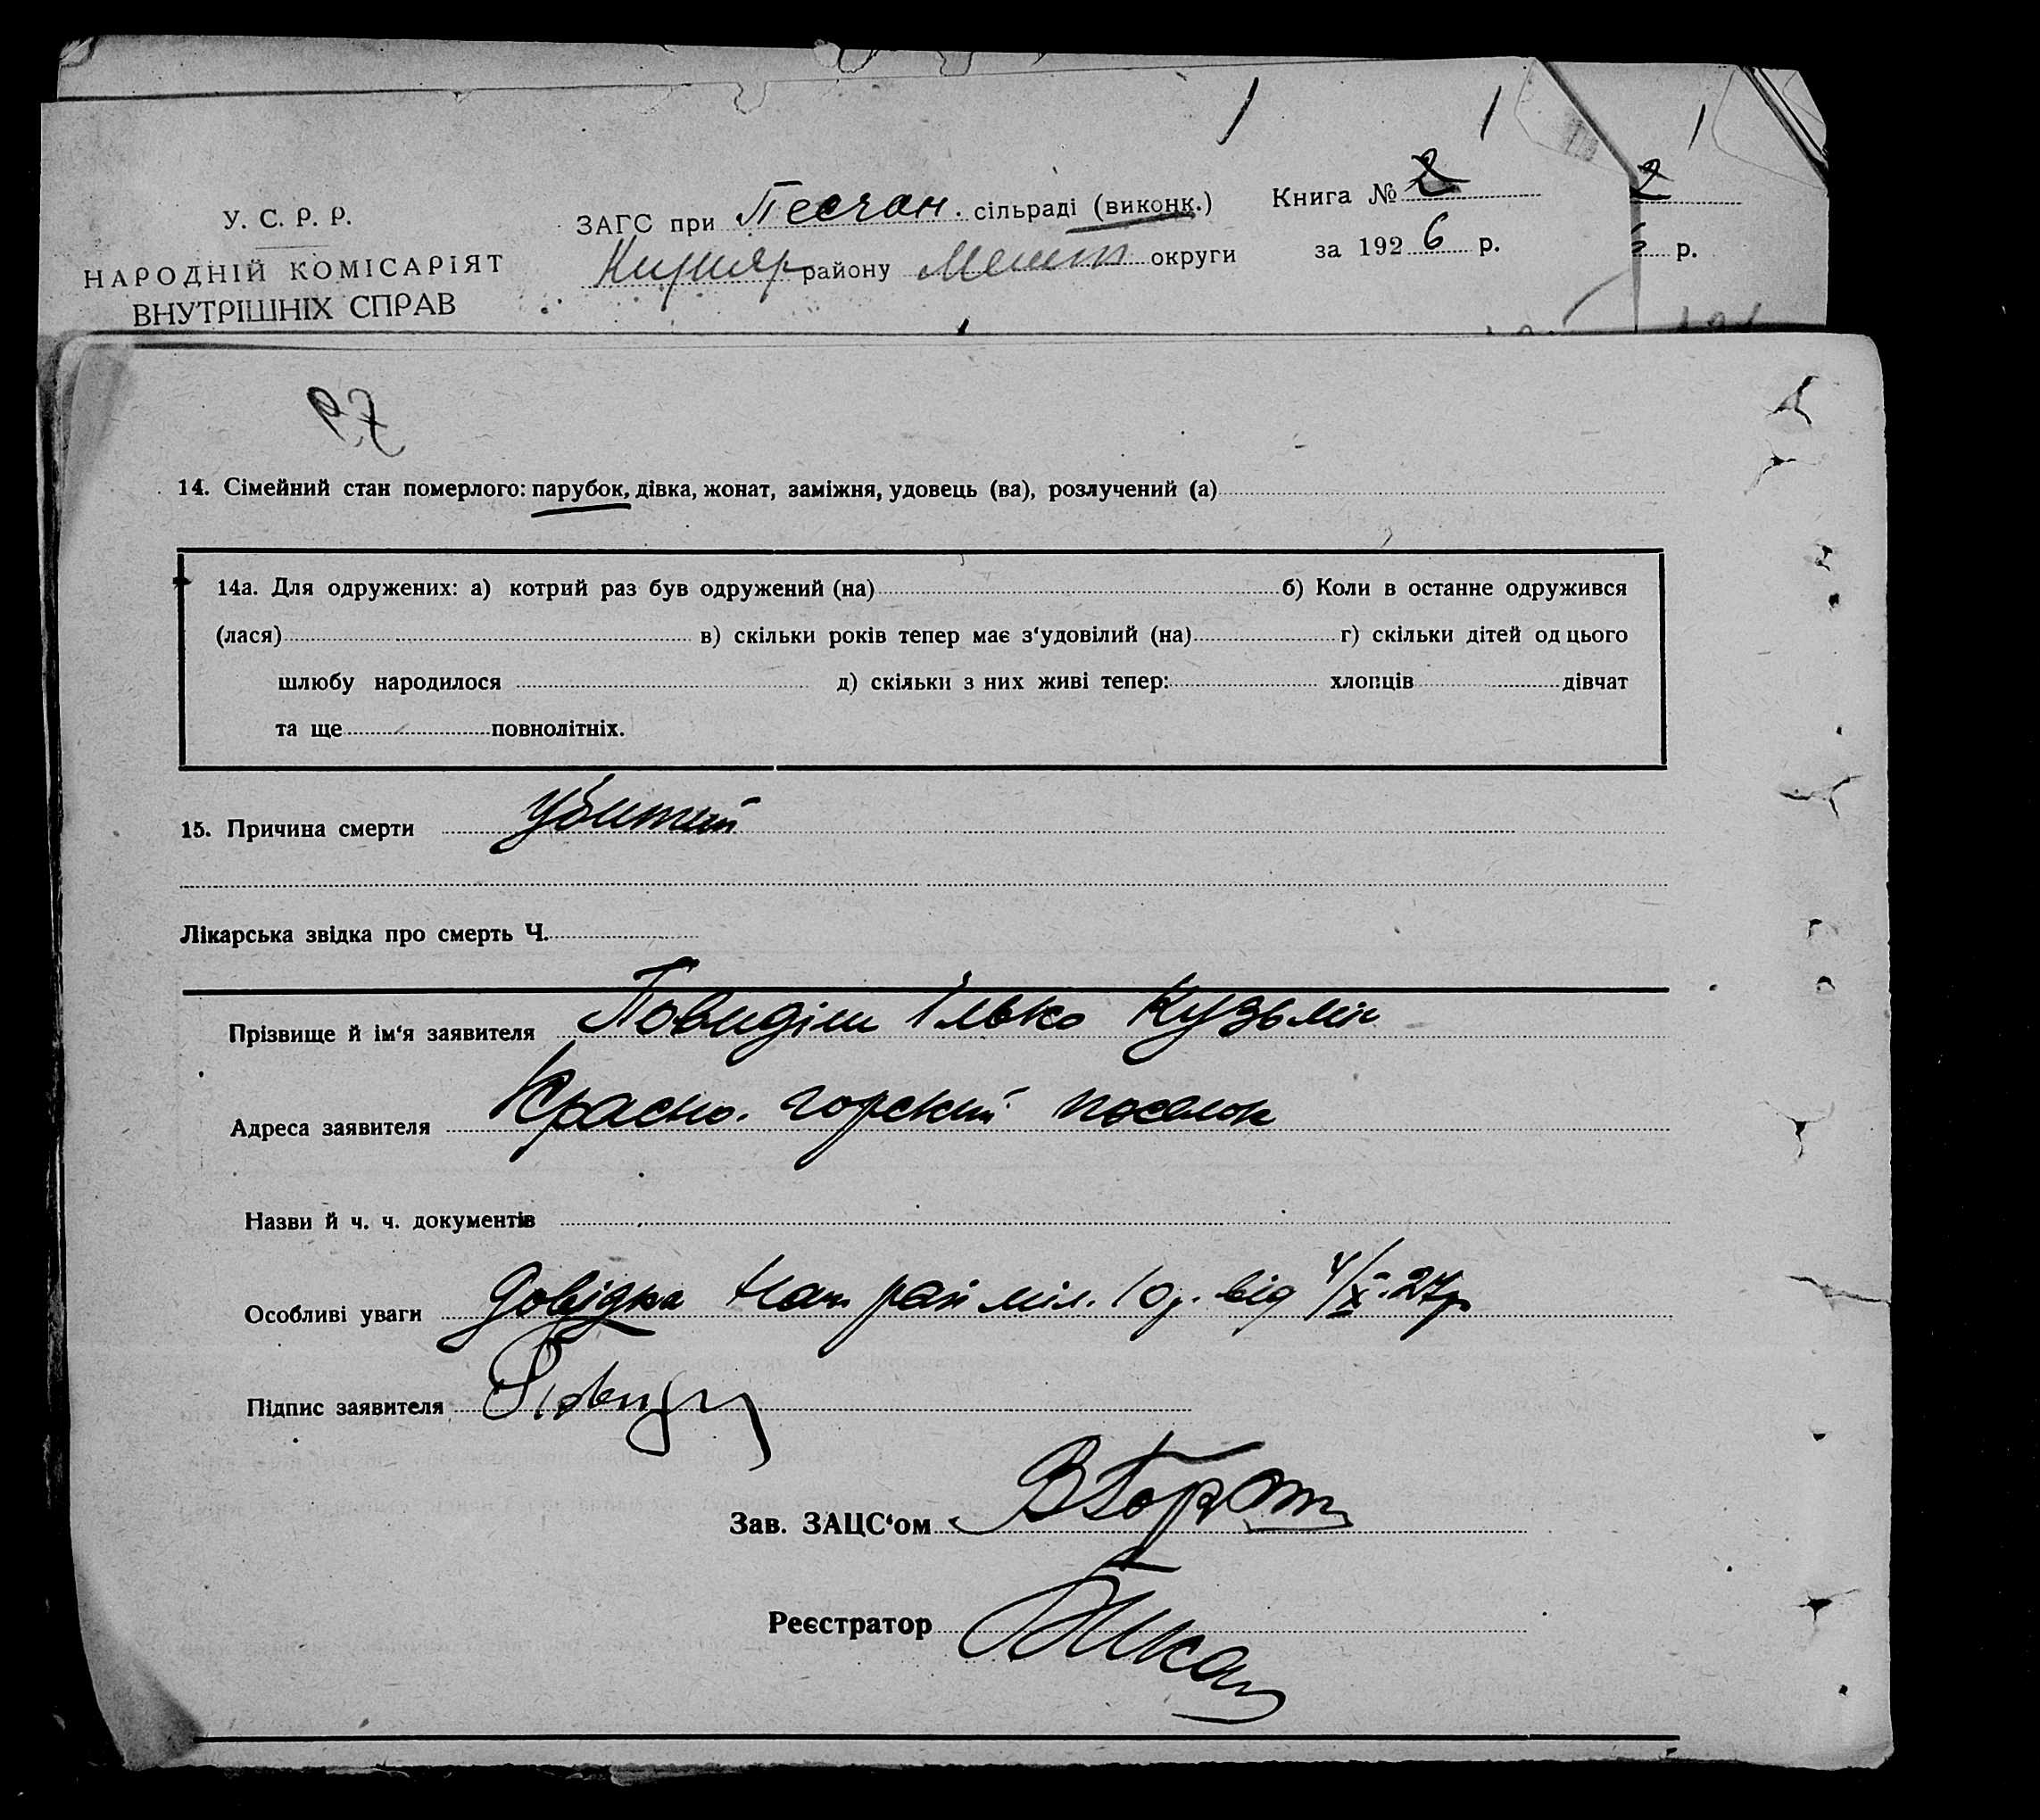 У. С. Р. Р.
НАРОДНІЙ КОМІСАРІЯТ
ВНУТРІШНІХ СПРАВ
ЗАГС при Песчан. сільраді (виконк.)
району округи
Книга № 2
за 1926 р.
2
р.
14. Сімейний стан померлого: парубок, дівка, жонат, заміжня, удовець (ва), розлучений (а)
14а. Для одружених: а) котрий раз був одружений (на) б) Коли в останне одружився
(лася) в) скільки років тепер має з'удовілий (на) г) скільки дітей од цього
шлюбу народилося д) скільки з них живі тепер: хлопців дівчат
та ще повнолітніх.
15. Причина смерти убитий
Лікарська звідка про смерть Ч.
Прізвище й ім'я заявителя Ілько Кузьміч
Адреса заявителя Красно. горский поселок
Назви й ч. ч. документів
Особливі уваги Довідка Нач рай міл. від 4/X-27р
Підпис заявителя
Зав. ЗАЦС'ом
Реєстратор